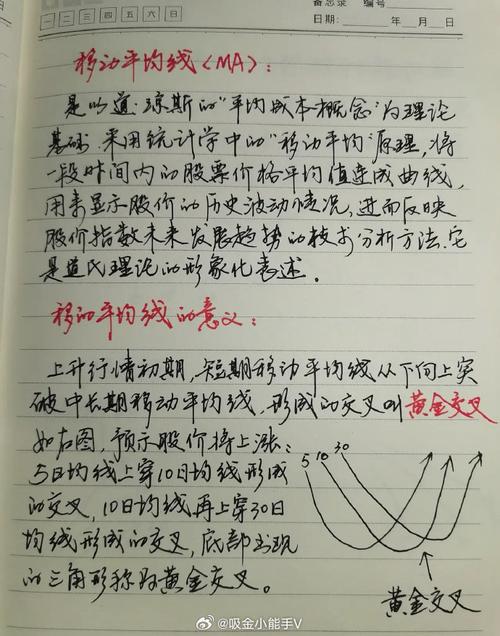 备忘录 编号
一 二 三 四 五 六 日
日期: 年 月 日
移动平均线(MA):
是以道·琼斯的“平均成本概念”为理论
基础,采用统计学中的“移动平均”原理,将
一段时间内的股票价格平均值连成曲线,
用来显示股价的历史波动情况,进而反映
股价指数未来发展趋势的技术分析方法.它
是道氏理论的形象化表述。
移动平均线的意义:
上升行情初期,短期移动平均线从下向上突
破中长期移动平均线,形成的交叉叫黄金交叉
如右图,预示股价将上涨:
5日均线上穿10日均线形成
的交叉,10日均线再上穿30日
均线形成的交叉,底部出现
的三角形称为黄金交叉。
5 10 30
黄金交叉
@吸金小能手V